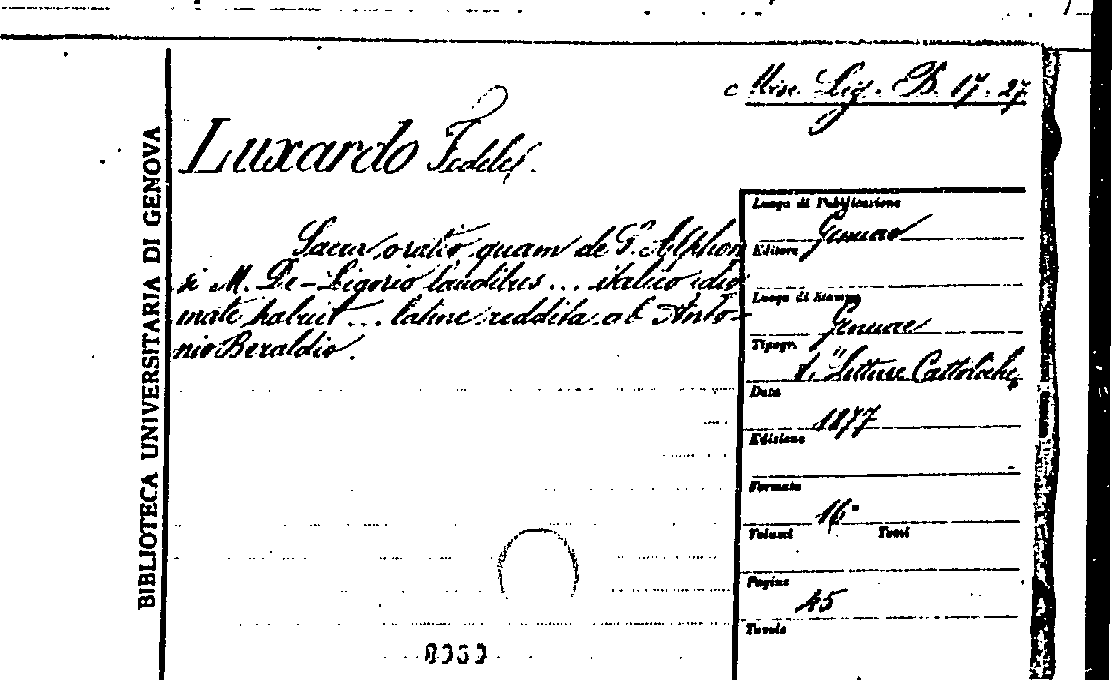 Misc. Lig. B. 17. 27
Luxardo Fedele.
BIBLIOTECA UNIVERSITARIA DI GENOVA
Sacra oratio quam de S. Alphon
si M. De-Ligorio laudibus ... italico idio
mate habuit ... latine reddita ab Anto-
nio Beraldio.
Luogo di Pubblicazione
Genuae
Editore
Luogo di Stampa
Genuae
Tipogr.
t. "Letture Cattoliche"
Data
1877
Edizione
Formato
16°
Volumi Tomi
Pagine
45
Tavole